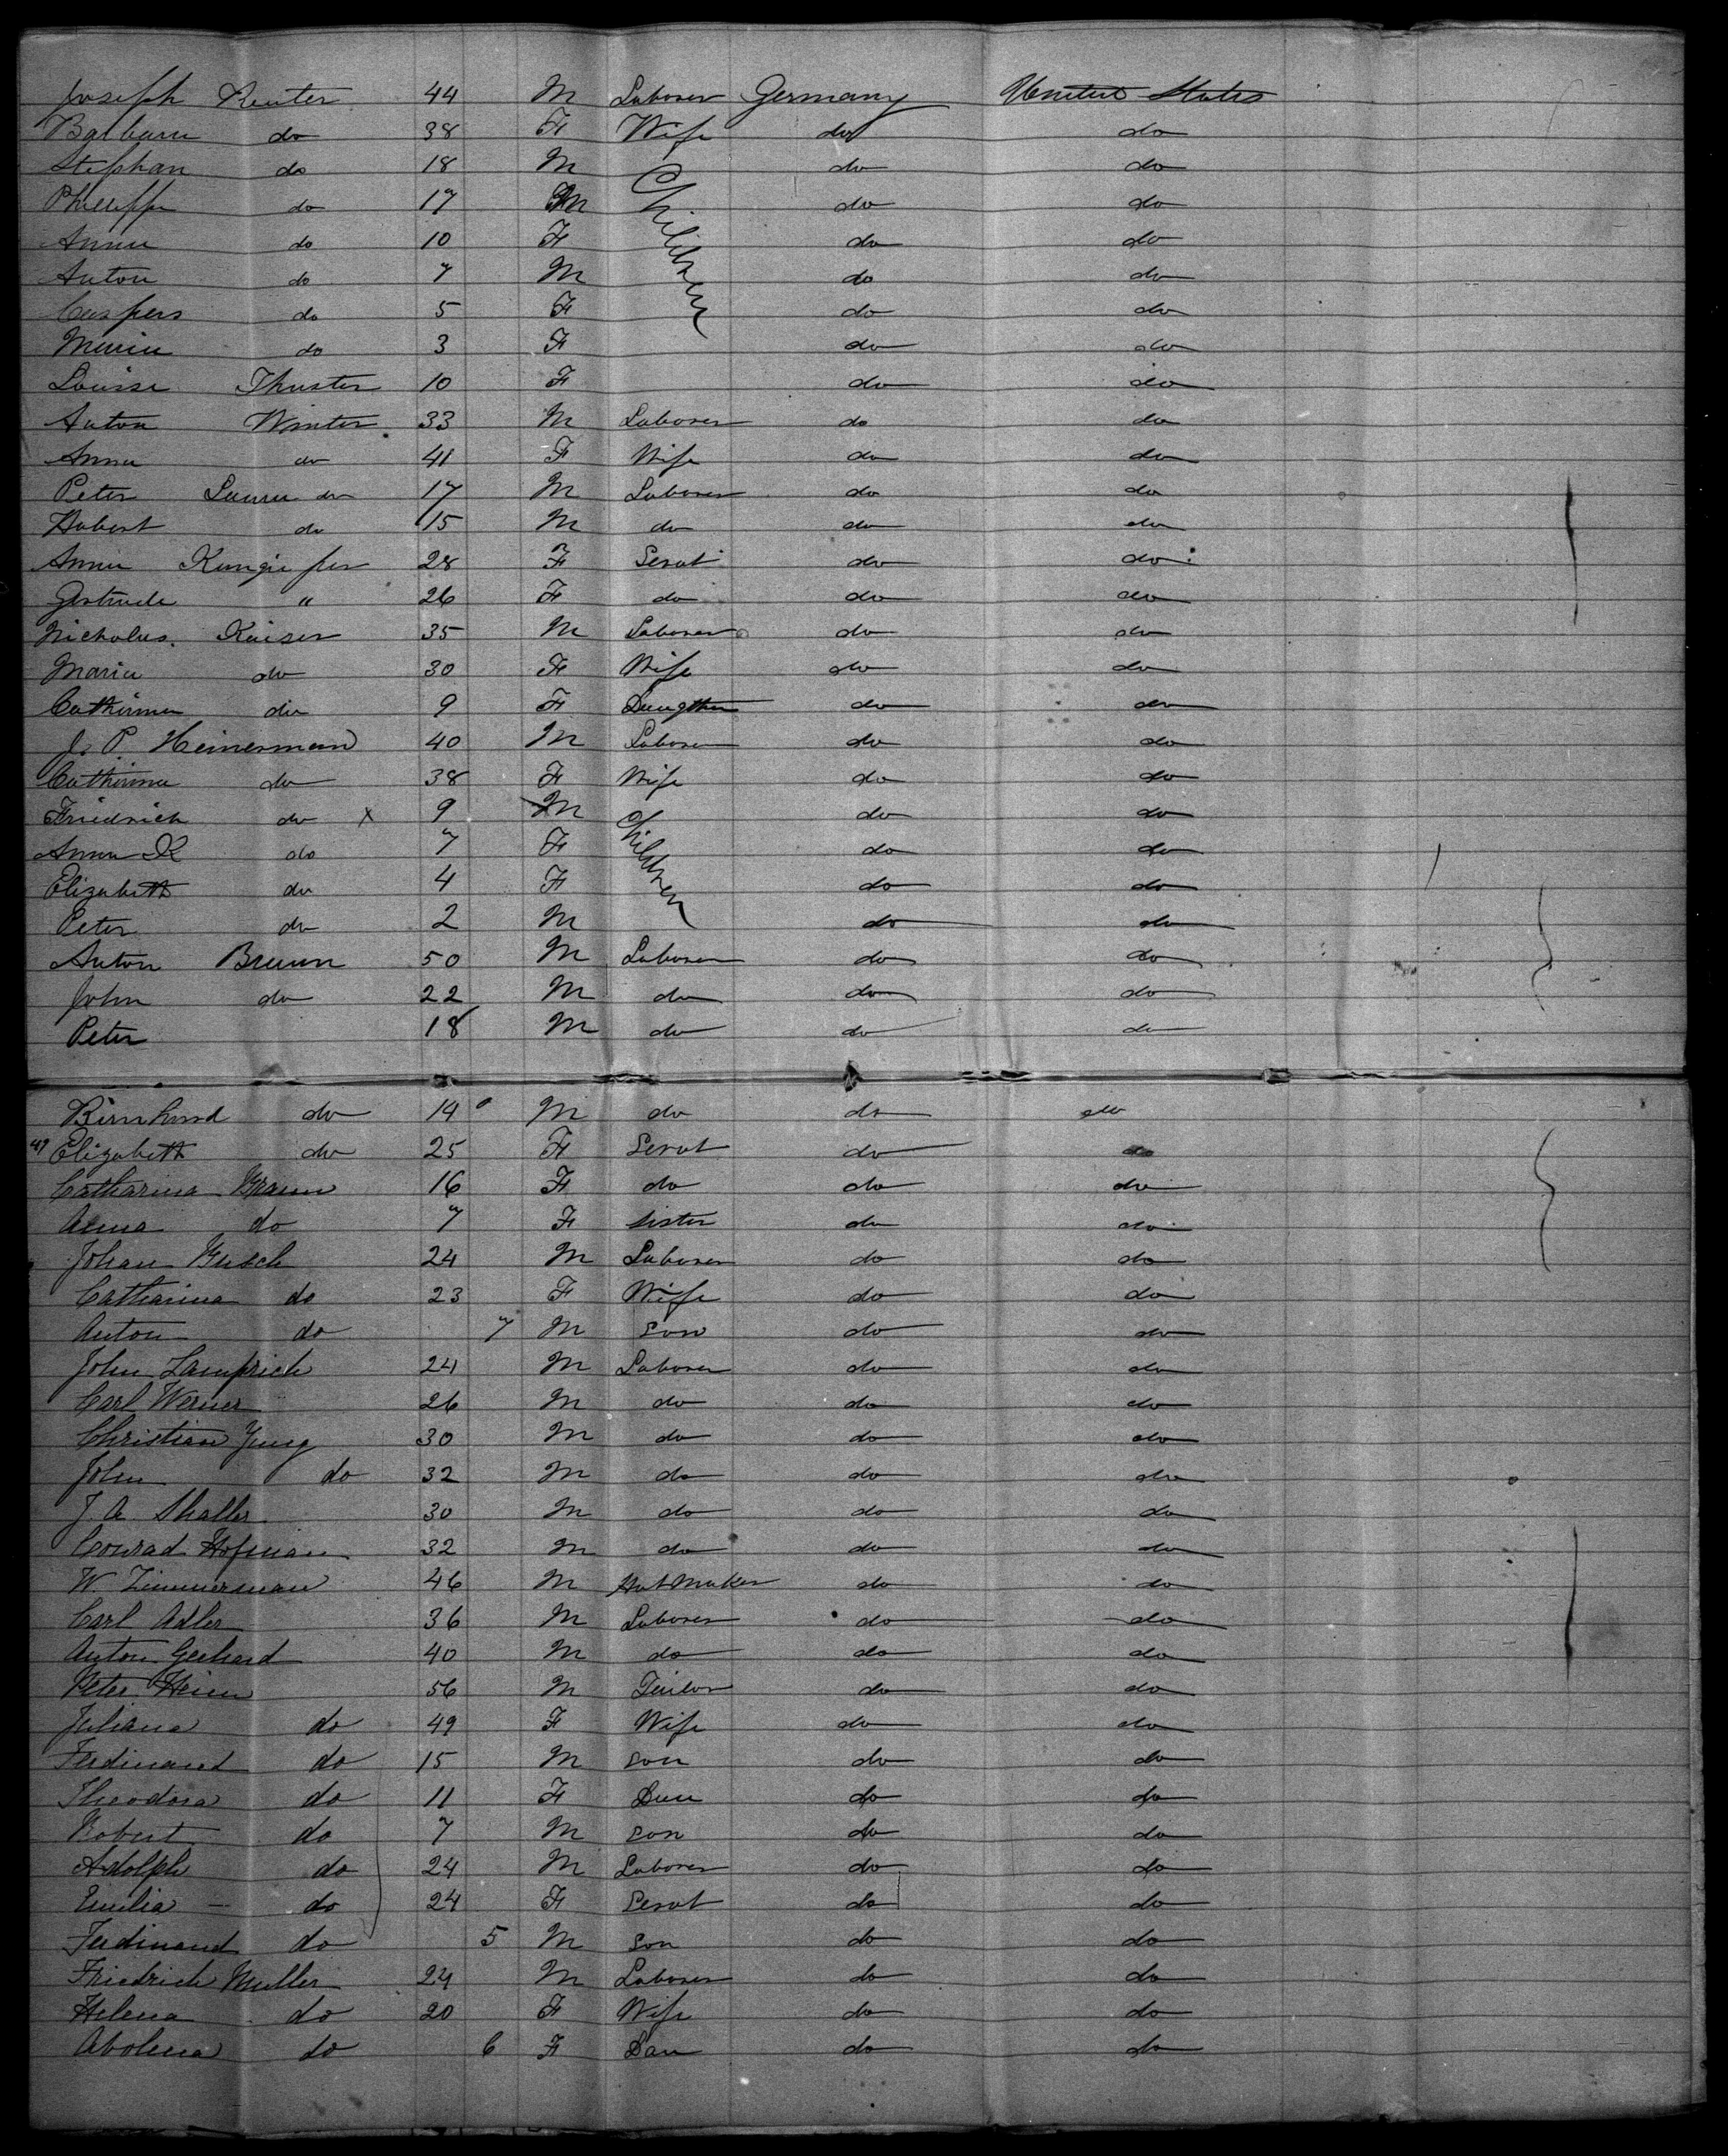 Joseph Reuter 44 M Laborer Germany United States
Barbara do 38 F Wife do do
Stephan do 18 M do do
Philippe do 17 M Children do do
Anna do 10 F do do
Anton do 7 M do do
Caspers do 5 F do do
Maria do 3 F do do
Louise Thuster 10 F do do
Anton Winter 33 M Laborer do do
Anna do 41 F Wife do do
Peter do 17 M Laborer do do
Hubert do 15 M do do do
Anna 28 F Servt do do
Gertrude " 26 F do do do
Nicholas Kaiser 35 M Laborer do do
Maria do 30 F Wife do do
Catherina do 9 F Daugther do do
J. P. Heinerman 40 M Laborer do do
Catherina do 38 F Wife do do
Friedrich do x 9 M do do
Anna K do 7 F Children do do
Elizabeth do 4 F do do
Peter do 2 M do do
Anton Braun 50 M Laborer do do
John do 22 M do do do
Peter 18 M do do do
Bernhard do 14 M do do do
Elizabeth do 25 F Servt do do
Catharina Braun 16 F do do do
Anna do 7 F sister do do
Johan Busch 24 M Laborer do do
Catharina do 23 F Wife do do
Anton do 7 M son do do
John Lamprich 24 M Laborer do do
Carl Werner 26 M do do do
Christian Jung 30 M do do do
John do 32 M do do do
J. A. Shaller 30 M do do do
Conrad Hofman 32 M do do do
W. Zimmerman 46 M Hat Maker do do
Carl Adler 36 M Laborer do do
Anton Gerhard 40 M do do do
Peter Heim 56 M Tailor do do
Juliana do 49 F Wife do do
Ferdinand do 15 M son do do
Theodora do 11 F Dau do do
Robert do 7 M son do do
Adolph do 24 M Laborer do do
Emilia do 24 F Servt do do
Ferdinand do 5 M son do do
Friedrich Muller 24 M Laborer do do
Helena do 20 F Wife do do
Abolena do 6 F Dau do do